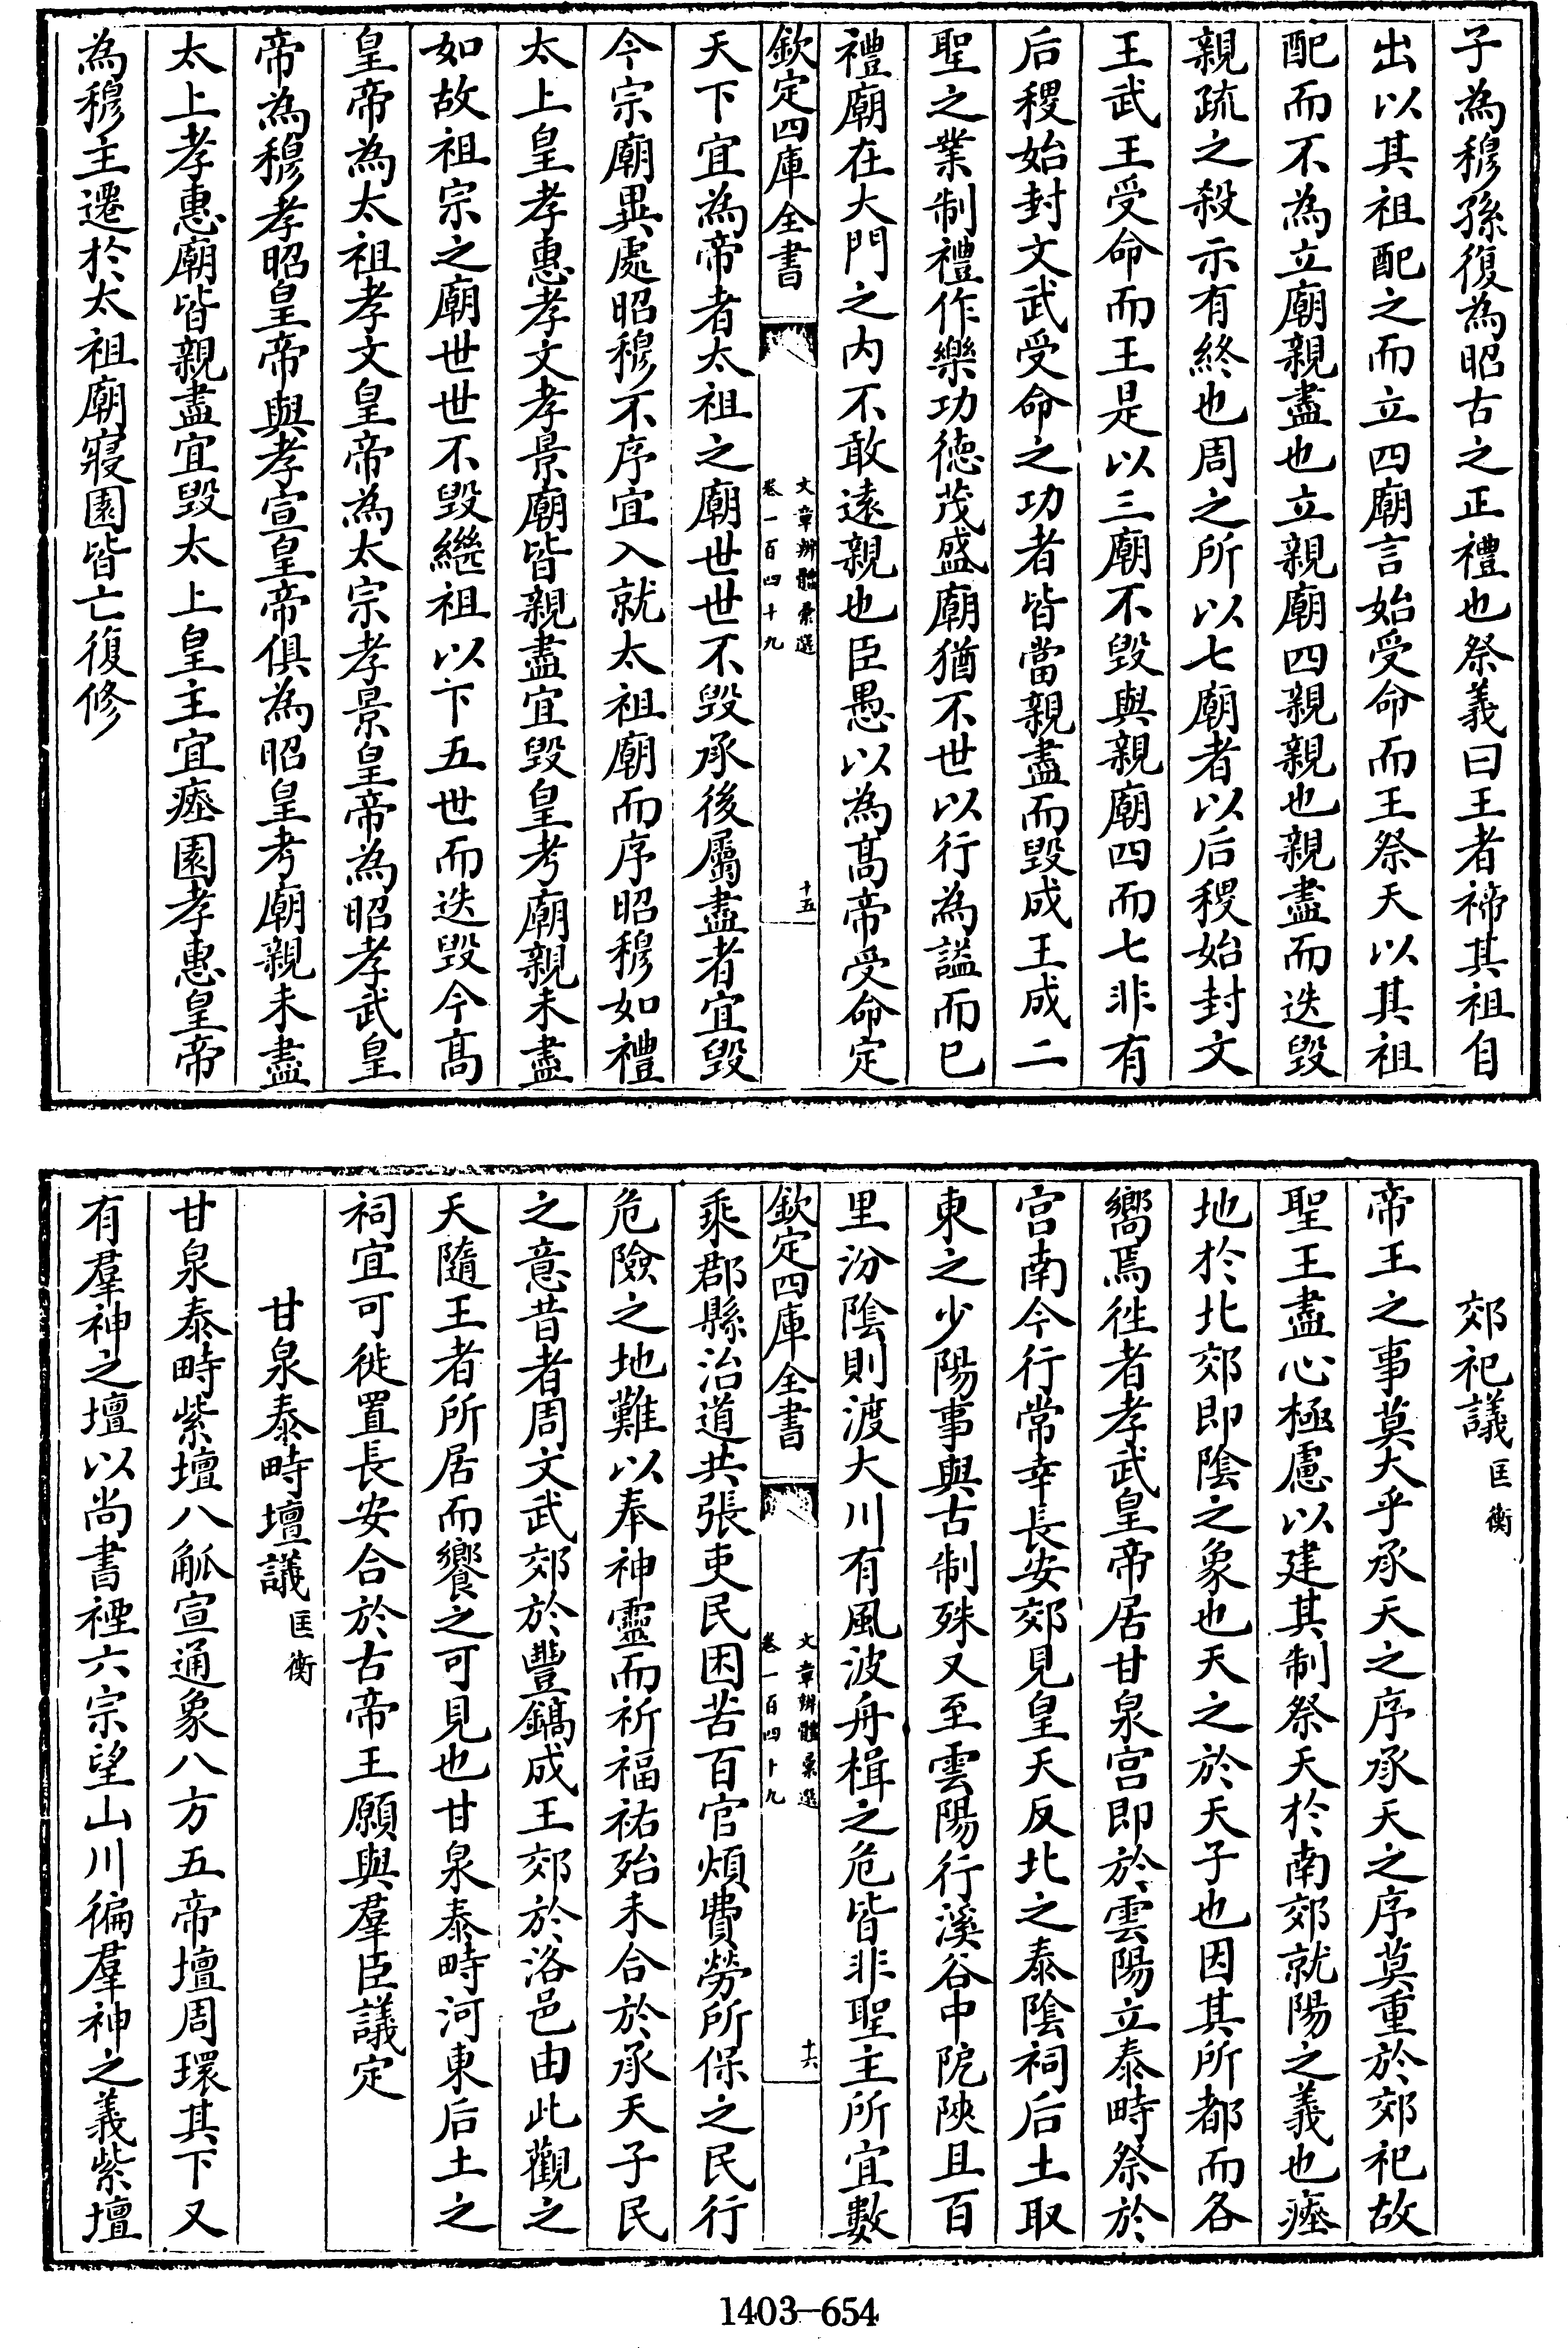 子為穆孫復為昭古之正禮也祭義曰王者禘其祖自
出以其祖配之而立四廟言始受命而王祭天以其祖
配而不為立廟親盡也立親廟四親親也親盡而迭毀
親疏之殺示有終也周之所以七廟者以后稷始封文
王武王受命而王是以三廟不毀與親廟四而七非有
后稷始封文武受命之功者皆當親盡而毀成王成二
聖之業制禮作樂功徳茂盛廟猶不世以行為謚而已
禮廟在大門之内不敢遠親也臣愚以為髙帝受命定
欽定四庫全書
文章辨體彚選
卷一百四十九
十五
天下宜為帝者太祖之廟世世不毀承後屬盡者宜毀
今宗廟異處昭穆不序宜入就太祖廟而序昭穆如禮
太上皇孝惠孝文孝景廟皆親盡宜毀皇考廟親未盡
如故祖宗之廟世世不毀繼祖以下五世而迭毀今髙
皇帝為太祖孝文皇帝為太宗孝景皇帝為昭孝武皇
帝為穆孝昭皇帝與孝宣皇帝俱為昭皇考廟親未盡
太上孝惠廟皆親盡宜毀太上皇主宜瘞園孝惠皇帝
為穆主遷於太祖廟寢園皆亡復修
郊祀議匡衡
帝王之事莫大乎承天之序承天之序莫重於郊祀故
聖王盡心極慮以建其制祭天於南郊就陽之義也瘞
地於北郊即隂之象也天之於天子也因其所都而各
嚮焉徃者孝武皇帝居甘泉宫即於雲陽立泰畤祭於
宫南今行常幸長安郊見皇天反北之泰隂祠后土取
東之少陽事與古制殊又至雲陽行溪谷中阸陜且百
里汾隂則渡大川有風波舟楫之危皆非聖主所宜數
欽定四庫全書
文章辨體彚選
卷一百四十九
十六
乘郡縣治道共張吏民困苦百官煩費勞所保之民行
危險之地難以奉神靈而祈福祐殆未合於承天子民
之意昔者周文武郊於豐鎬成王郊於洛邑由此觀之
天隨王者所居而饗之可見也甘泉泰畤河東后土之
祠宜可徙置長安合於古帝王願與羣臣議定
甘泉泰畤壇議匡衡
甘泉泰畤紫壇八觚宣通象八方五帝壇周環其下又
有羣神之壇以尚書禋六宗望山川徧羣神之義紫壇
1403-654